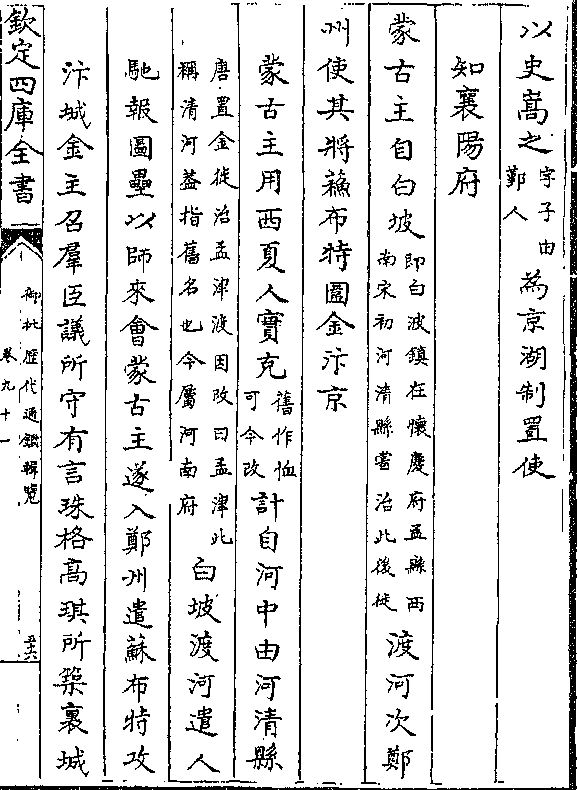 以史嵩之字子由
鄞人為京湖制置使
知襄陽府
蒙古主自白坡即白波鎮在懷慶府孟縣西
南宋初河清縣嘗治此後徙渡河次鄭
州使其將蘓布特圖金汴京
蒙古主用西夏人寶克舊作恤
可今改計自河中由河清縣
唐置金徙治孟津渡因改曰孟津此
稱清河葢指舊名也今屬河南府白坡渡河遣人
馳報圖壘以師來會蒙古主遂入鄭州遣蘇布特攻
汴城金主召羣臣議所守有言珠格高琪所築裏城
欽定四庫全書
御批歷代通鑑輯覽
卷九十一